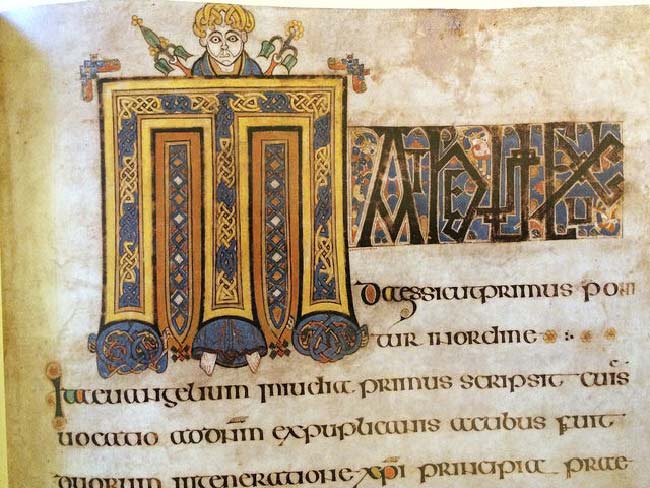 MATHEUS EX IU
daes sicut primus poni
tur in ordine
ita euangelium in iudia primus scripsit cuīs
uocatio ad dnm̄ ex puplicanis actibus fuit
duorum in generatione xp̄i principia prae